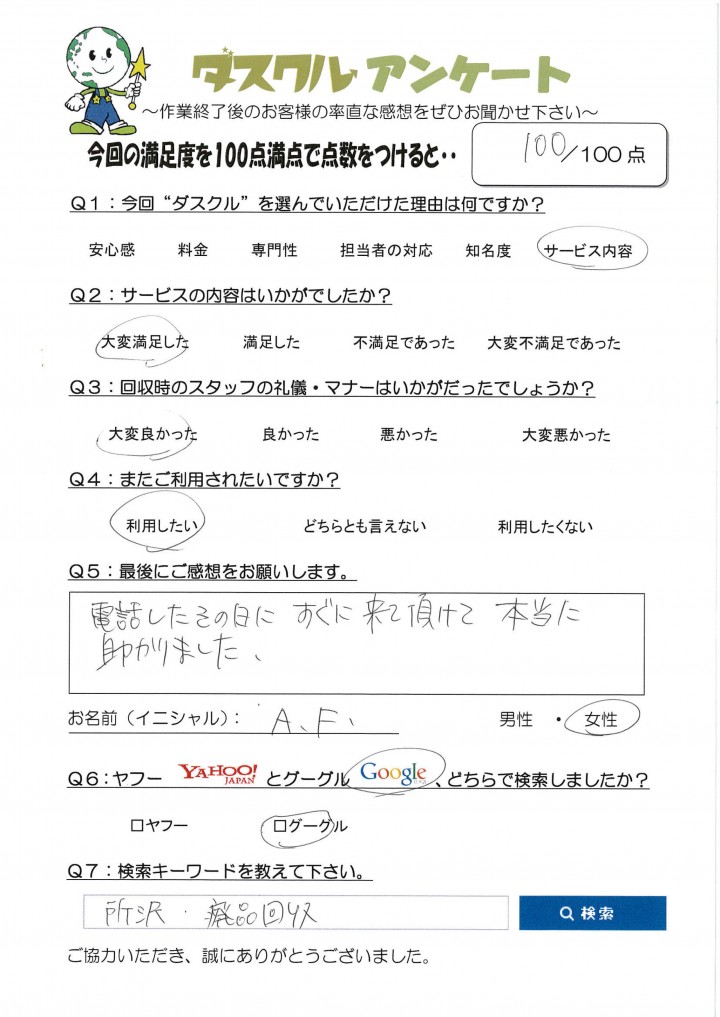 ダスクル アンケート
～作業終了後のお客様の率直な感想をぜひお聞かせ下さい～
今回の満足度を100点満点で点数をつけると‥ 100/100点
Q1：今回“ダスクル”を選んでいただけた理由は何ですか？
安心感 料金 専門性 担当者の対応 知名度 サービス内容
Q2：サービスの内容はいかがでしたか？
大変満足した 満足した 不満足であった 大変不満足であった
Q3：回収時のスタッフの礼儀・マナーはいかがだったでしょうか？
大変良かった 良かった 悪かった 大変悪かった
Q4：またご利用されたいですか？
利用したい どちらとも言えない 利用したくない
Q5：最後にご感想をお願いします。
電話したその日に すぐに来て頂けて 本当に
助かりました、
お名前（イニシャル）： A、F、 男性 ・ 女性
Q6：ヤフー YAHOO! JAPAN とグーグル Google、どちらで検索しましたか？
□ヤフー □グーグル
Q7：検索キーワードを教えて下さい。
所沢・廃品回収 検索
ご協力いただき、誠にありがとうございました。